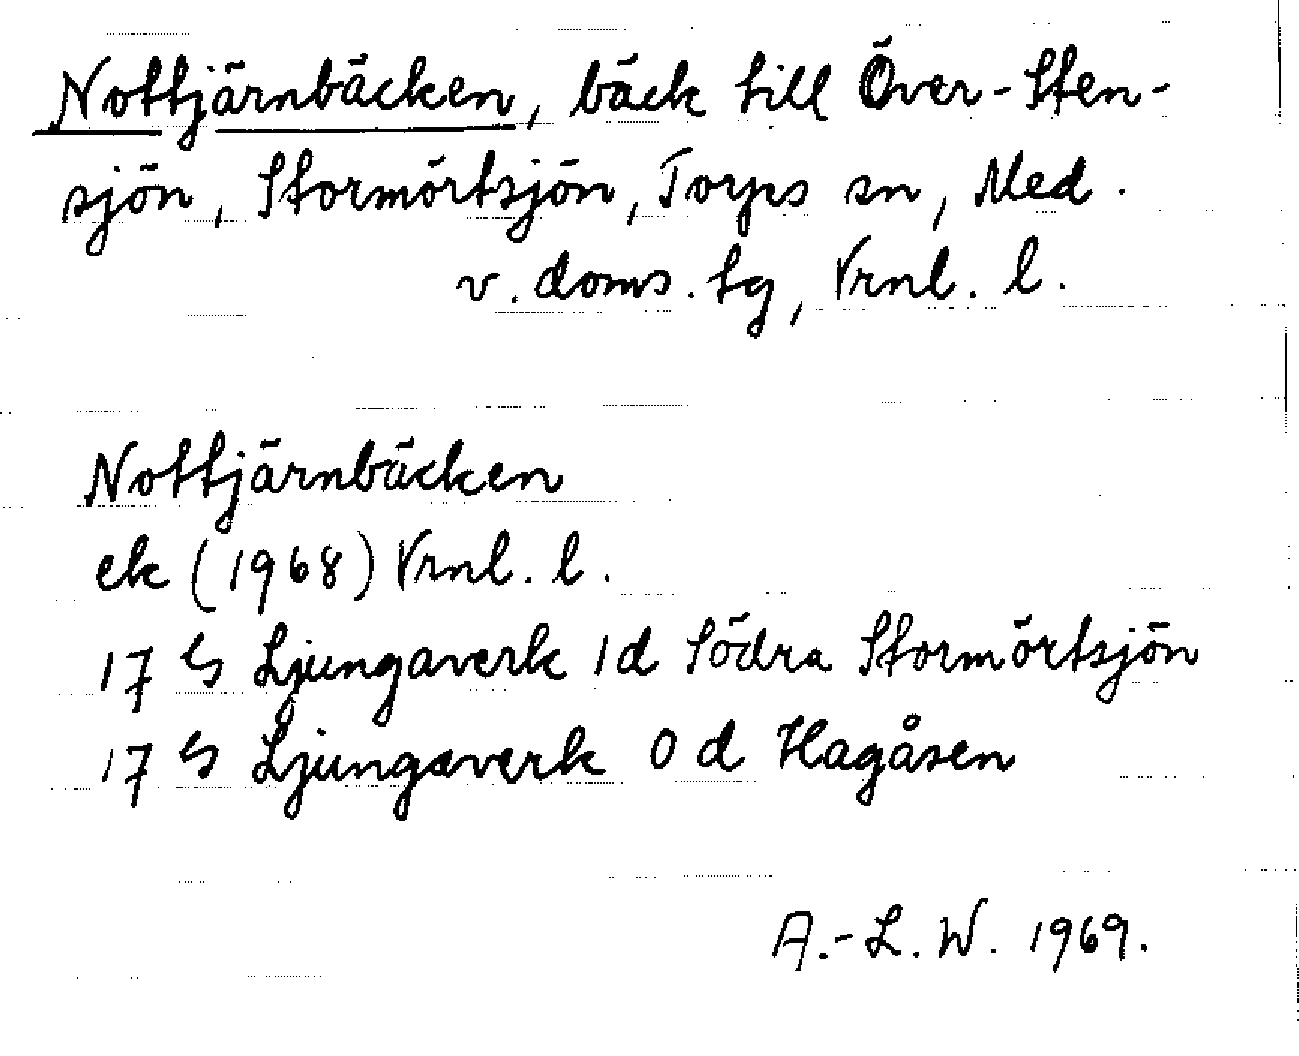 Nottjärnbäcken, bäck till Över-Sten-
sjön, Stormörtsjön, Torps sn, Med.
v. doms. tg, Vrnl. l.
Nottjärnbäcken
ek (1968) Vrnl. l.
17 G Ljungaverk 1d Södra Stormörtsjön
17 G Ljungaverk 0 d Hagåsen
A.-L. W. 1969.